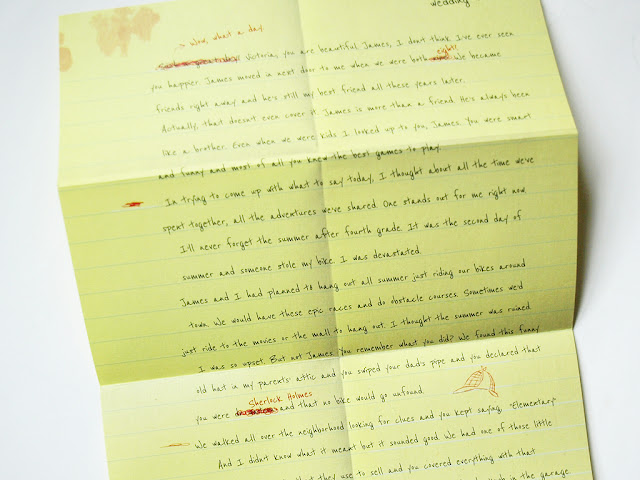 wedding
Wow, what a day
Victoria, you are beautiful. James, I don't think I've ever seen
eight!
you happier. James moved in next door to me when we were both We became
friends right away and he's still my best friend all these years later.
Actually, that doesn't even cover it. James is more than a friend. He's always been
like a brother. Even when we were kids I looked up to you, James. You were smart
and funny and most of all you knew the best games to play.
In trying to come up with what to say today, I thought about all the time we've
spent together, all the adventures we've shared. One stands out for me right now.
I'll never forget the summer after fourth grade. It was the second day of
summer and someone stole my bike. I was devastated.
James and I had planned to hang out all summer just riding our bikes around
town. We would have these epic races and do obstacle courses. Sometimes we'd
just ride to the movies or the mall to hang out. I thought the summer was ruined
I was so upset. But not James. You remember what you did? We found this funny
old hat in my parents' attic and you swiped your dad's pipe and you declared that
Sherlock Holmes
you were and that no bike would go unfound.
We walked all over the neighborhood looking for clues and you kept saying, "Elementary"
And I didn't know what it meant but it sounded good. We had one of those little
that they use to sell and you covered everything with that
in the garage